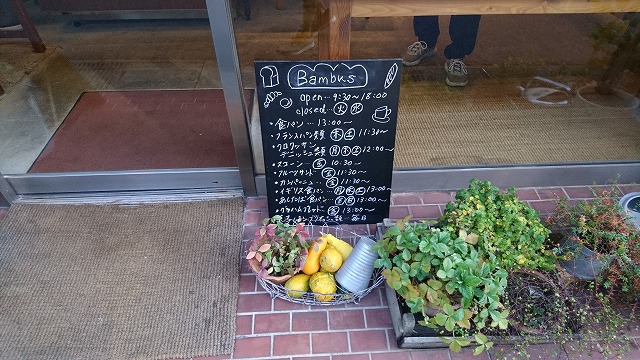 Bambus
open… 9:30～18:00
closed… 火 水
・食パン … 13:00～
・フランスパン類 木 土 11:30～
・クロワッサン
デニッシュ類 月 木 土 12:00～
・スコーン … 金 10:30～
・フルーツサンド 金 11:30～
・カンパーニュ … 金 11:30～
・イギリス食パン … 13:00～
・あんぱん食パン … 13:00～
・グラハムブレッド 金 13:00～
毎日